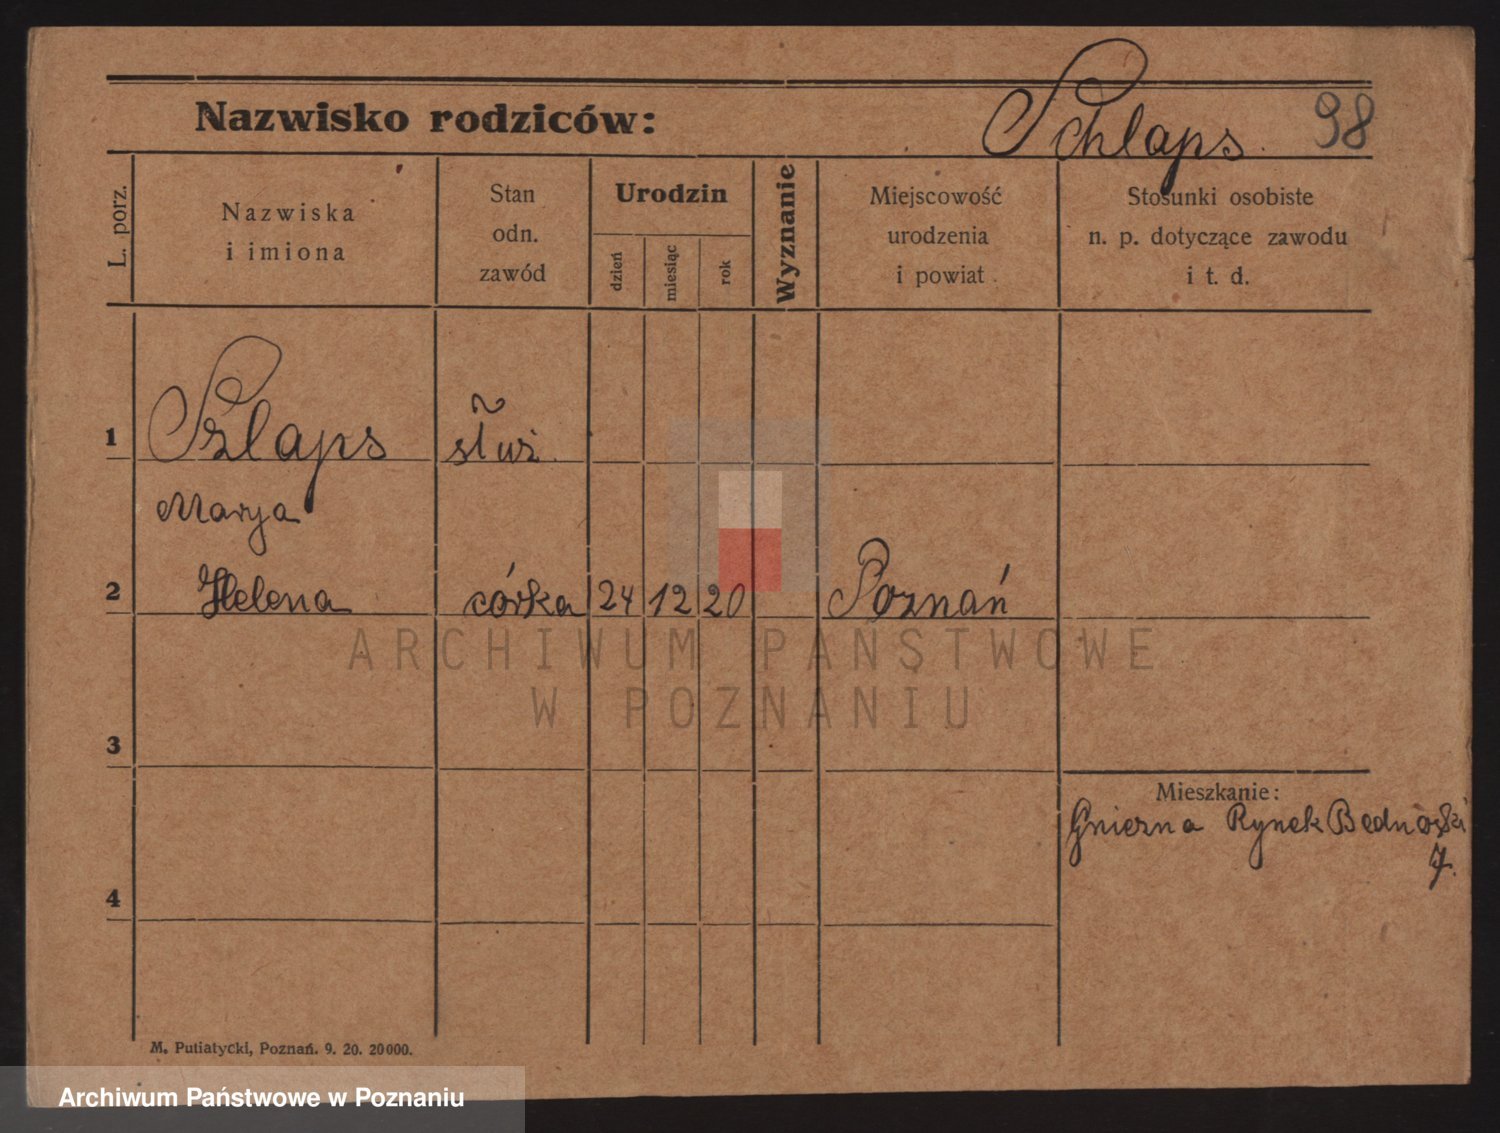 Nazwisko rodziców: Schlaps. 98
L. porz.
Nazwiska
i imiona
Stan
odn.
zawód
Urodzin
dzień
miesiąc
rok
Wyznanie
Miejscowość
urodzenia
i powiat
Stosunki osobiste
n. p. dotyczące zawodu
i t. d.
1 Szlaps służ.
Marya
2 Helena córka 24 12 20 Poznań
ARCHIWUM PAŃSTWOWE
W POZNANIU
3
Mieszkanie:
Gniezna Rynek Bednarski
7.
4
M. Putiatycki, Poznań. 9. 20. 20000.
Archiwum Państwowe w Poznaniu